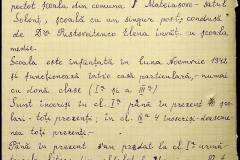 pectot școala din comuna P. Mateiasova - satul
Solonț, școală cu un singur post, condusă
de D-ra Pustovoitenco Elena învăț. cu școala
medie.
Școala este înființată în luna Noemvrie 1942
și funcționează într'o casă particulară, numai
cu două clase (I-a și a III-a)
Sunt înscriși în cl. I-a până în prezent școlari
toți prezenți, în a 4 înscriși deasemenea
toți prezenți
Până în prezent s'au predat la cl. I-a urmă-